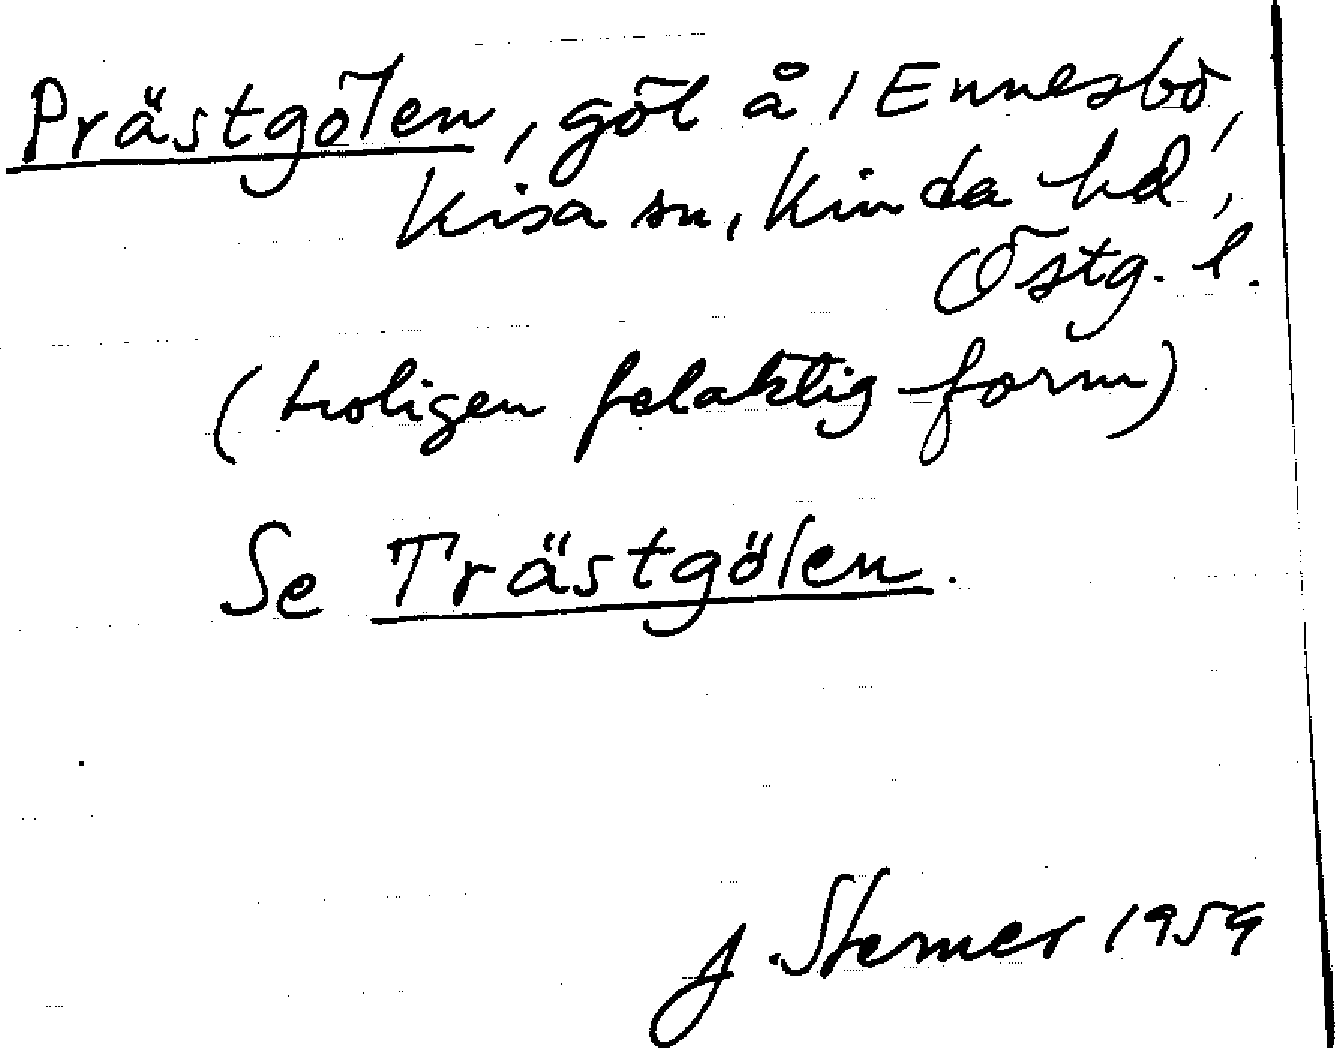 Prästgölen, göl å 1 Ennesbo,
Kisa sn, Kinda hd,
Östg. l.
(troligen felaktig form)
Se Trästgölen.
J. Sterner 1959